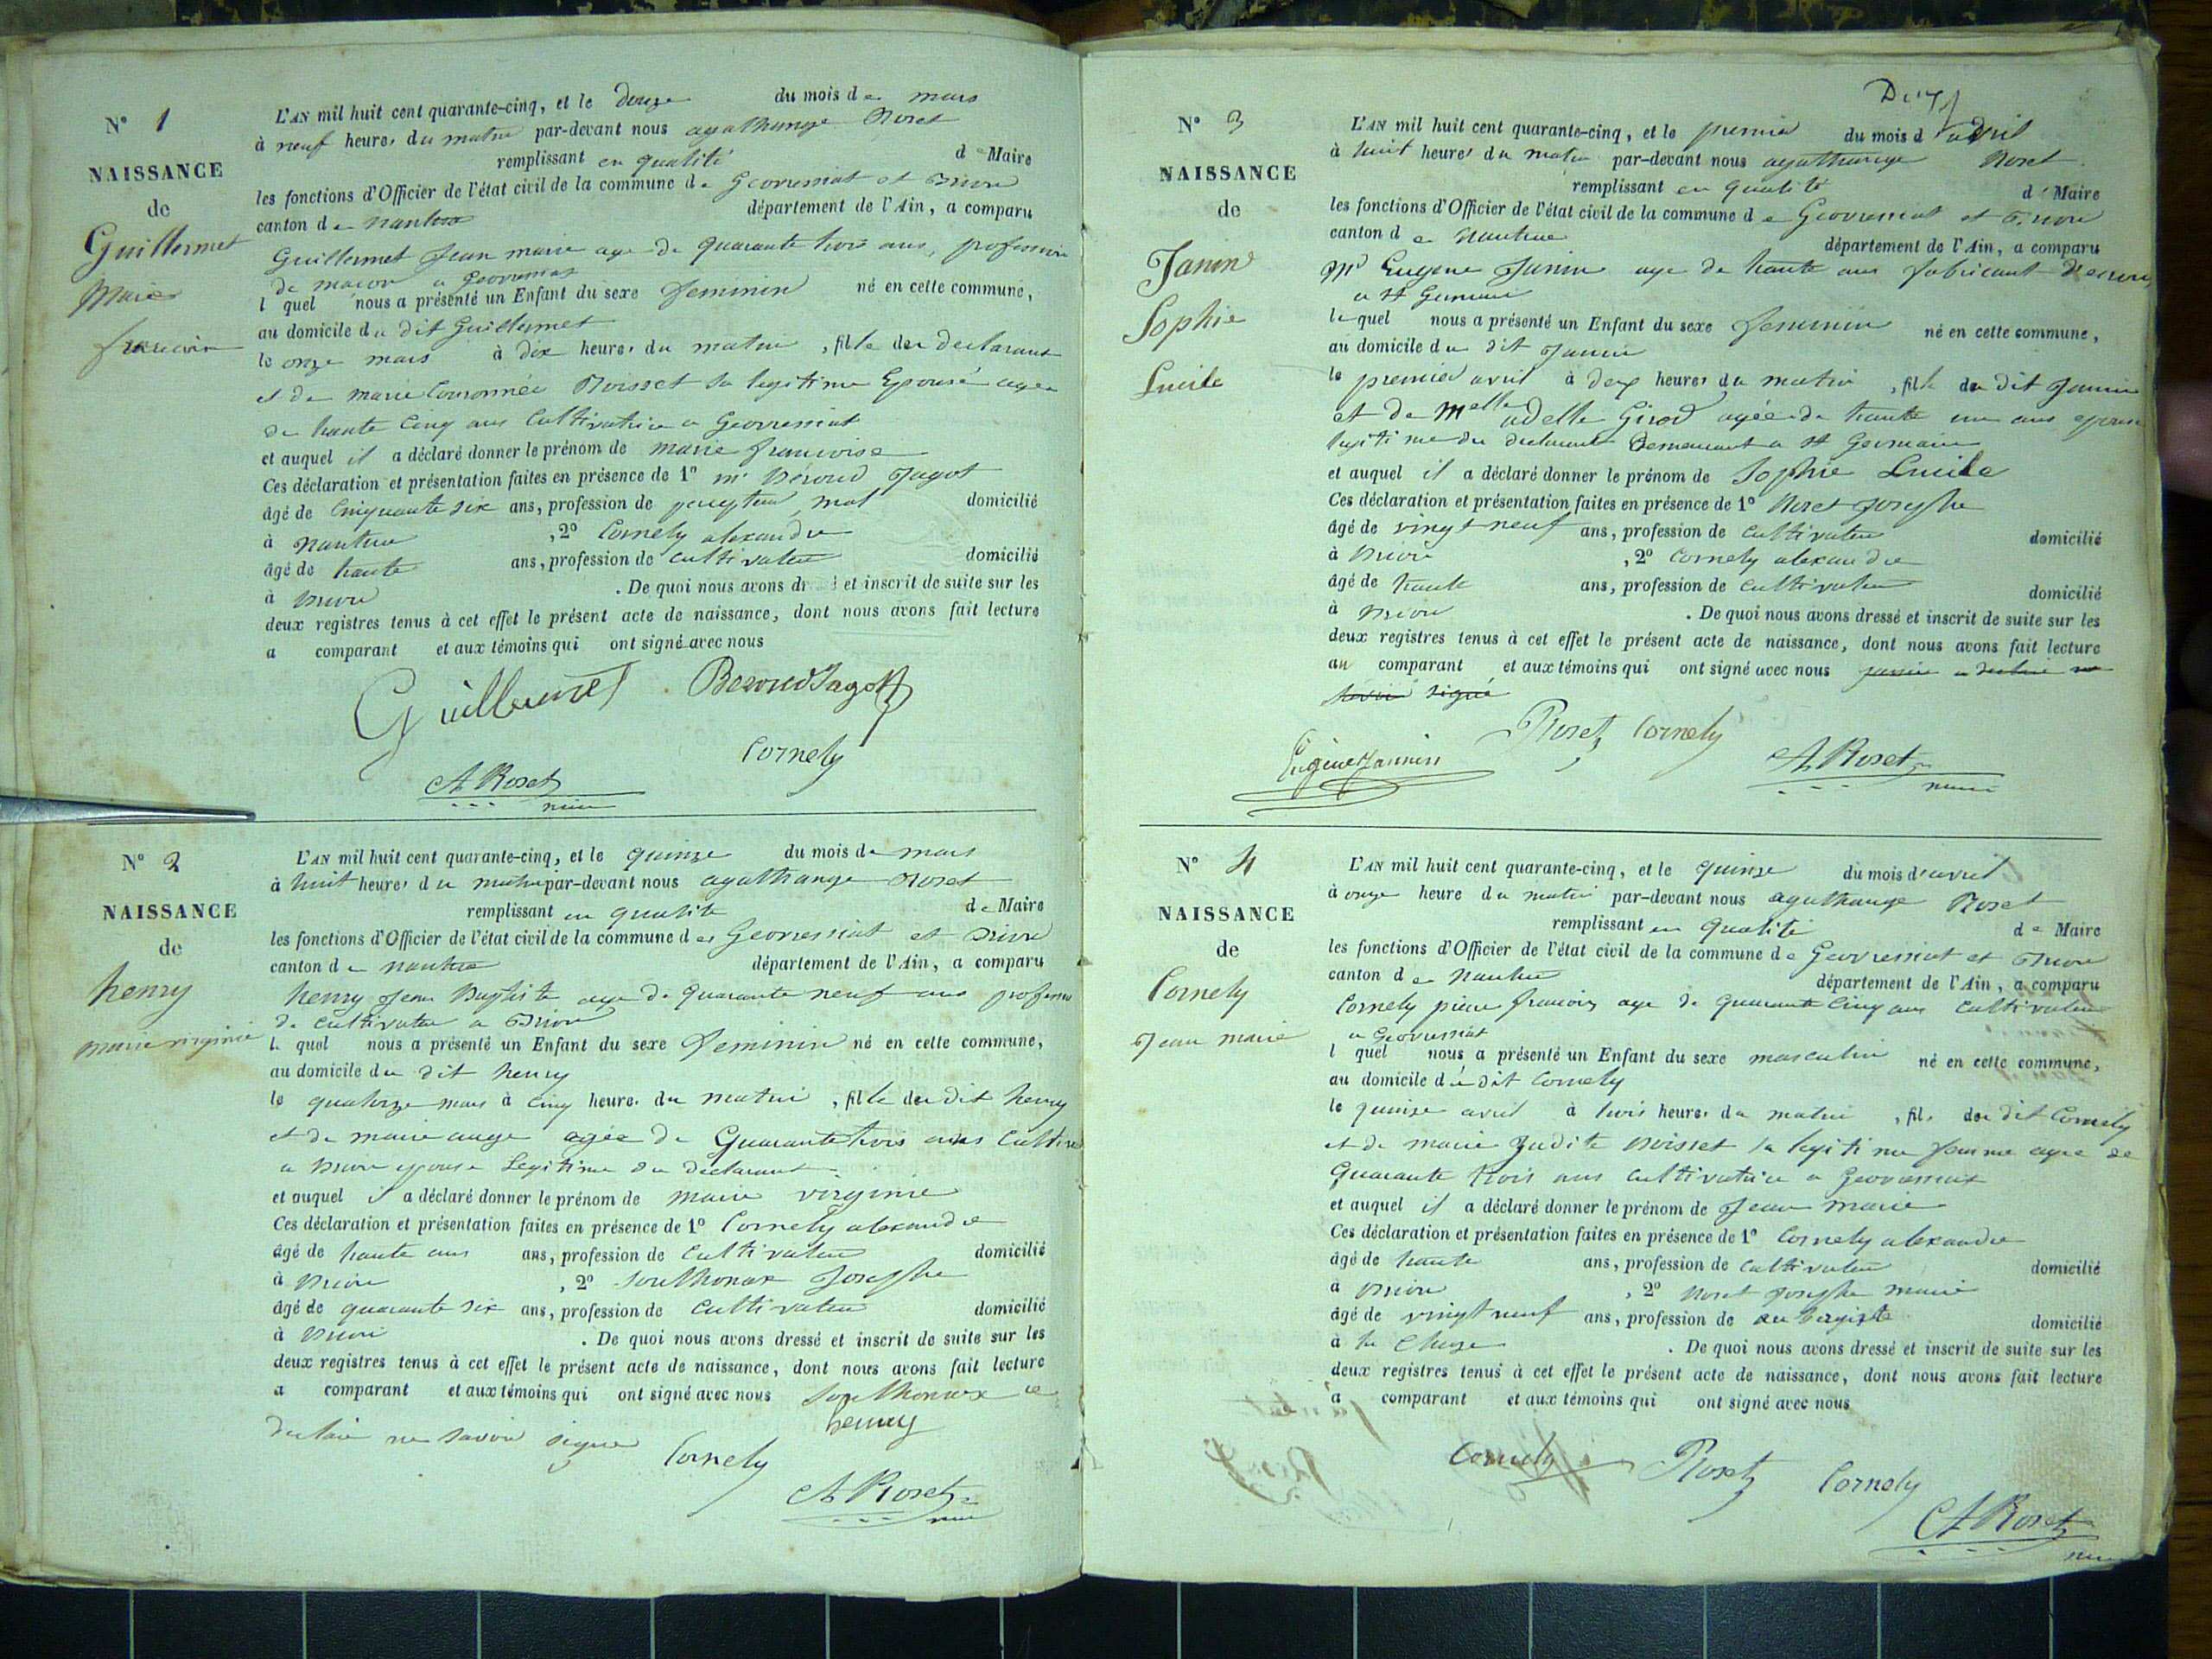 N° 1
NAISSANCE
de
Guillermet
Marie
francoise
L'AN mil huit cent quarante-cinq, et le douze du mois de mars
à neuf heures du matin par-devant nous agathange Roset
remplissant en qualité de Maire
les fonctions d'Officier de l'état civil de la commune de Geovressiat et
canton de nantua département de l'Ain, a comparu
Guillermet Jean marie age de quarante trois ans, profession
de macon a Geovressiat
l quel nous a présenté un Enfant du sexe feminin né en cette commune,
au domicile du dit Guillermet
le onze mars à dix heures du matin, fille du declarant
et de marie Couronnée Boisset sa legitime Epouse agee
de trente Cinq ans Cultivatrice a Geovressiat
et auquel il a déclaré donner le prénom de marie francoise
Ces déclaration et présentation faites en présence de 1° mr Béroud Jagot
âgé de Cinquante six ans, profession de domicilié
à nantua, 2° Cornely alexandre
âgé de trente ans, profession de Cultivateur domicilié
à. De quoi nous avons dr et inscrit de suite sur les
deux registres tenus à cet effet le présent acte de naissance, dont nous avons fait lecture
a comparant et aux témoins qui ont signé avec nous
Guillermet Beroud Jagot
Cornely
A Roset
maire
N° 2
NAISSANCE
de
henry
marie virginie
L'AN mil huit cent quarante-cinq, et le quinze du mois de mars
à huit heures du matin par-devant nous agathange Roset
remplissant en qualité de Maire
les fonctions d'Officier de l'état civil de la commune de Geovressiat et
canton de nantua département de l'Ain, a comparu
henry Jean Baptiste age de quarante neuf ans profession
de cultivateur a
l quel nous a présenté un Enfant du sexe feminin né en cette commune,
au domicile du dit henry
le quatorze mars à cinq heures du matin, fille du dit henry
et de marie ange agée de Quarante trois ans
a epouse Legitime du declarant
et auquel il a déclaré donner le prénom de marie virginie
Ces déclaration et présentation faites en présence de 1° Cornely alexandre
âgé de trente ans ans, profession de Cultivateur domicilié
à, 2° Southonax Josephe
âgé de quarante six ans, profession de Cultivateur domicilié
à. De quoi nous avons dressé et inscrit de suite sur les
deux registres tenus à cet effet le présent acte de naissance, dont nous avons fait lecture
a comparant et aux témoins qui ont signé avec nous Southonnax a
henry
declaré ne savoir signer Cornely
A Roset
maire
N° 3
NAISSANCE
de
Janin
Sophie
Lucile
L'AN mil huit cent quarante-cinq, et le premier du mois d'avril
à huit heures du matin par-devant nous agathange Roset
remplissant en qualité de Maire
les fonctions d'Officier de l'état civil de la commune de Geovressiat et
canton de Nantua département de l'Ain, a comparu
Mr Eugene Janin age de trente ans fabricant
a St Germain
lequel nous a présenté un Enfant du sexe feminin né en cette commune,
au domicile du dit Janin
le premier avril à deux heures du matin, fille du dit Janin
et de Melle adelle Girod agée de trente un ans epouse
legitime du declarant Demeurant a St Germain
et auquel il a déclaré donner le prénom de Sophie Lucile
Ces déclaration et présentation faites en présence de 1° Roset Josephe
âgé de vingt neuf ans, profession de Cultivateur domicilié
à, 2° Cornely alexandre
âgé de trente ans, profession de Cultivateur domicilié
à. De quoi nous avons dressé et inscrit de suite sur les
deux registres tenus à cet effet le présent acte de naissance, dont nous avons fait lecture
au comparant et aux témoins qui ont signé avec nous janin a declaré ne
savoir signé
Eugène Jannin Roset Cornely A Roset
maire
N° 4
NAISSANCE
de
Cornely
Jean marie
L'AN mil huit cent quarante-cinq, et le quinze du mois d'avril
à onze heure du matin par-devant nous agathange Roset
remplissant en qualité de Maire
les fonctions d'Officier de l'état civil de la commune de Geovressiat et
canton de Nantua département de l'Ain, a comparu
Cornely pierre francois age de quarante Cinq ans Cultivateur
a Geovressiat
l quel nous a présenté un Enfant du sexe masculin né en cette commune,
au domicile du dit Cornely
le quinze avril à trois heures du matin, fils du dit Cornely
et de marie Judite Boisset sa legitime femme agee de
Quarante trois ans cultivatrice a Geovressiat
et auquel il a déclaré donner le prénom de Jean marie
Ces déclaration et présentation faites en présence de 1° Cornely alexandre
âgé de trente ans, profession de Cultivateur domicilié
à, 2° Roset Josephe marie
âgé de vingt neuf ans, profession de aubergiste domicilié
à la Cluse. De quoi nous avons dressé et inscrit de suite sur les
deux registres tenus à cet effet le présent acte de naissance, dont nous avons fait lecture
a comparant et aux témoins qui ont signé avec nous
Cornely Roset Cornely
A Roset